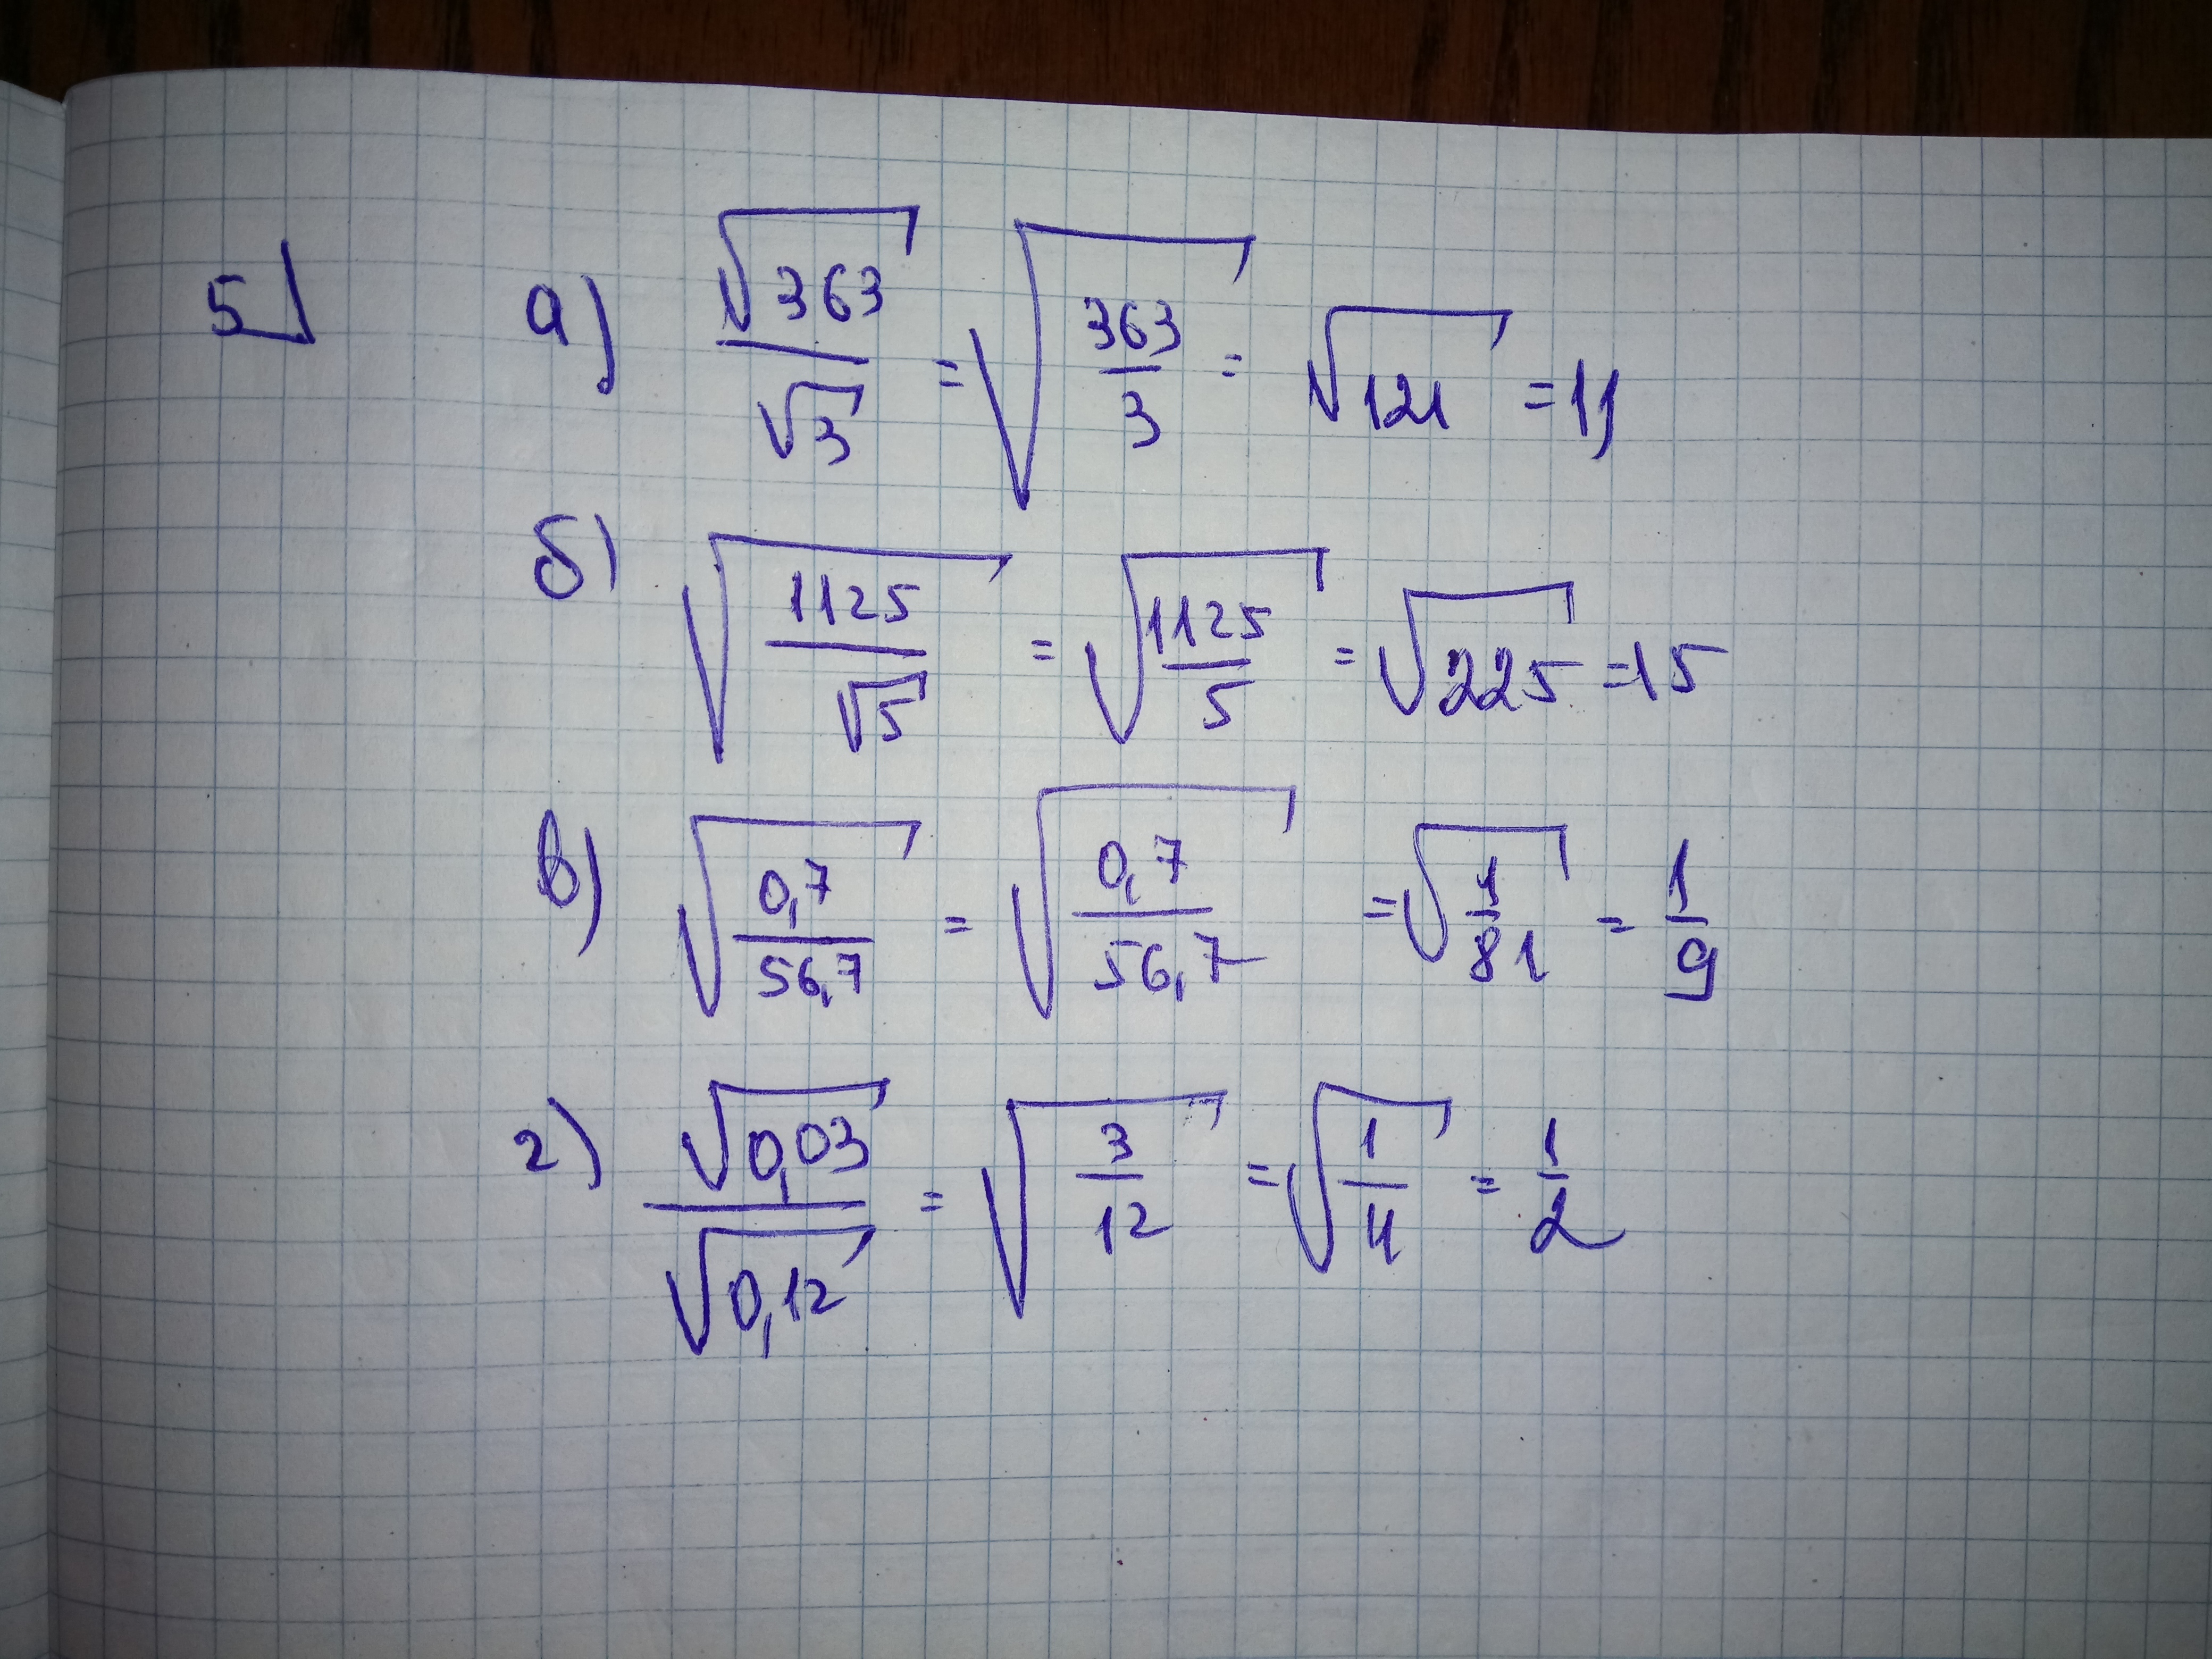 5 а) √363/√3 = √(363/3) = √121 = 11
б) √(1125/√5) = √(1125/5) = √225 = 15
в) √(0,7/56,7) = √(0,7/56,7) = √(1/81) = 1/9
г) √0,03/√0,12 = √(3/12) = √(1/4) = 1/2